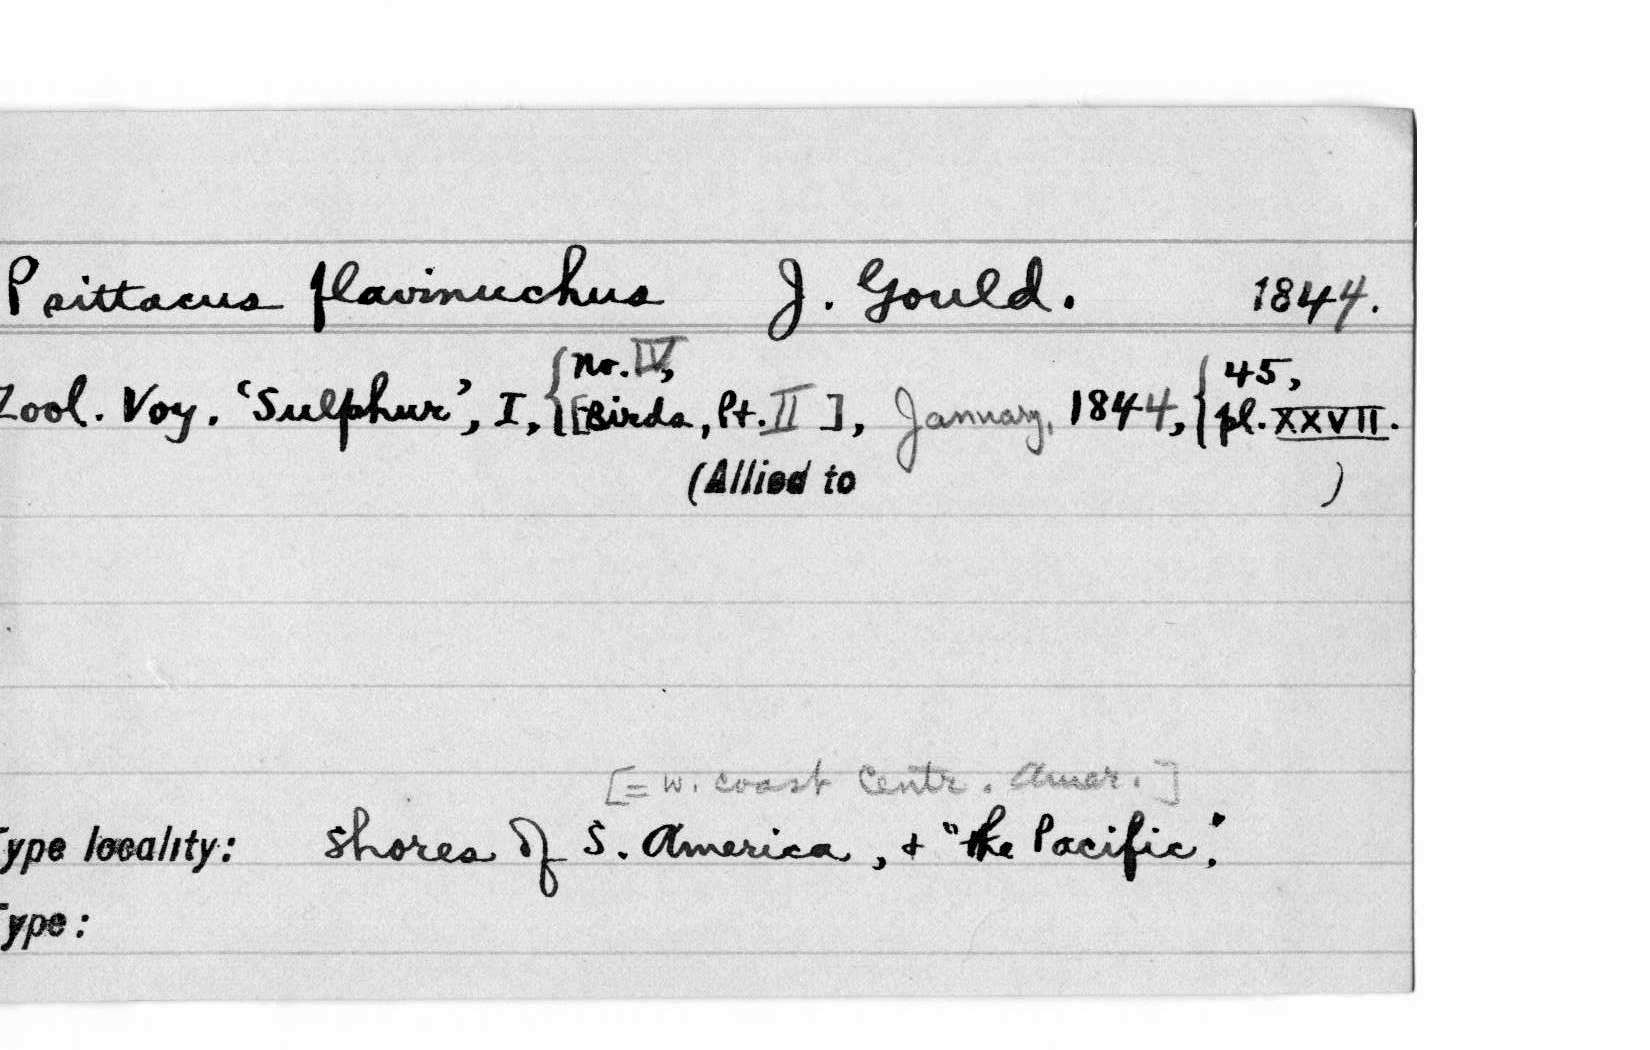 Psittacus flavinuchus J. Gould. 1844.
No. IV, 45,
Zool. Voy. 'Sulphur', I, { [Birds, Pt. II ], January, 1844, { pl. XXVII.
(Allied to )
[= w. coast Centr. Amer. ]
Type locality: shores of S. America, + "the Pacific".
Type: